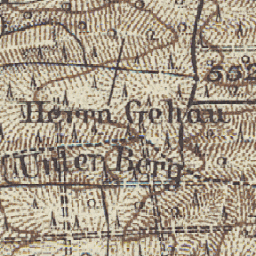 Herrn Gehau
Unter Berg